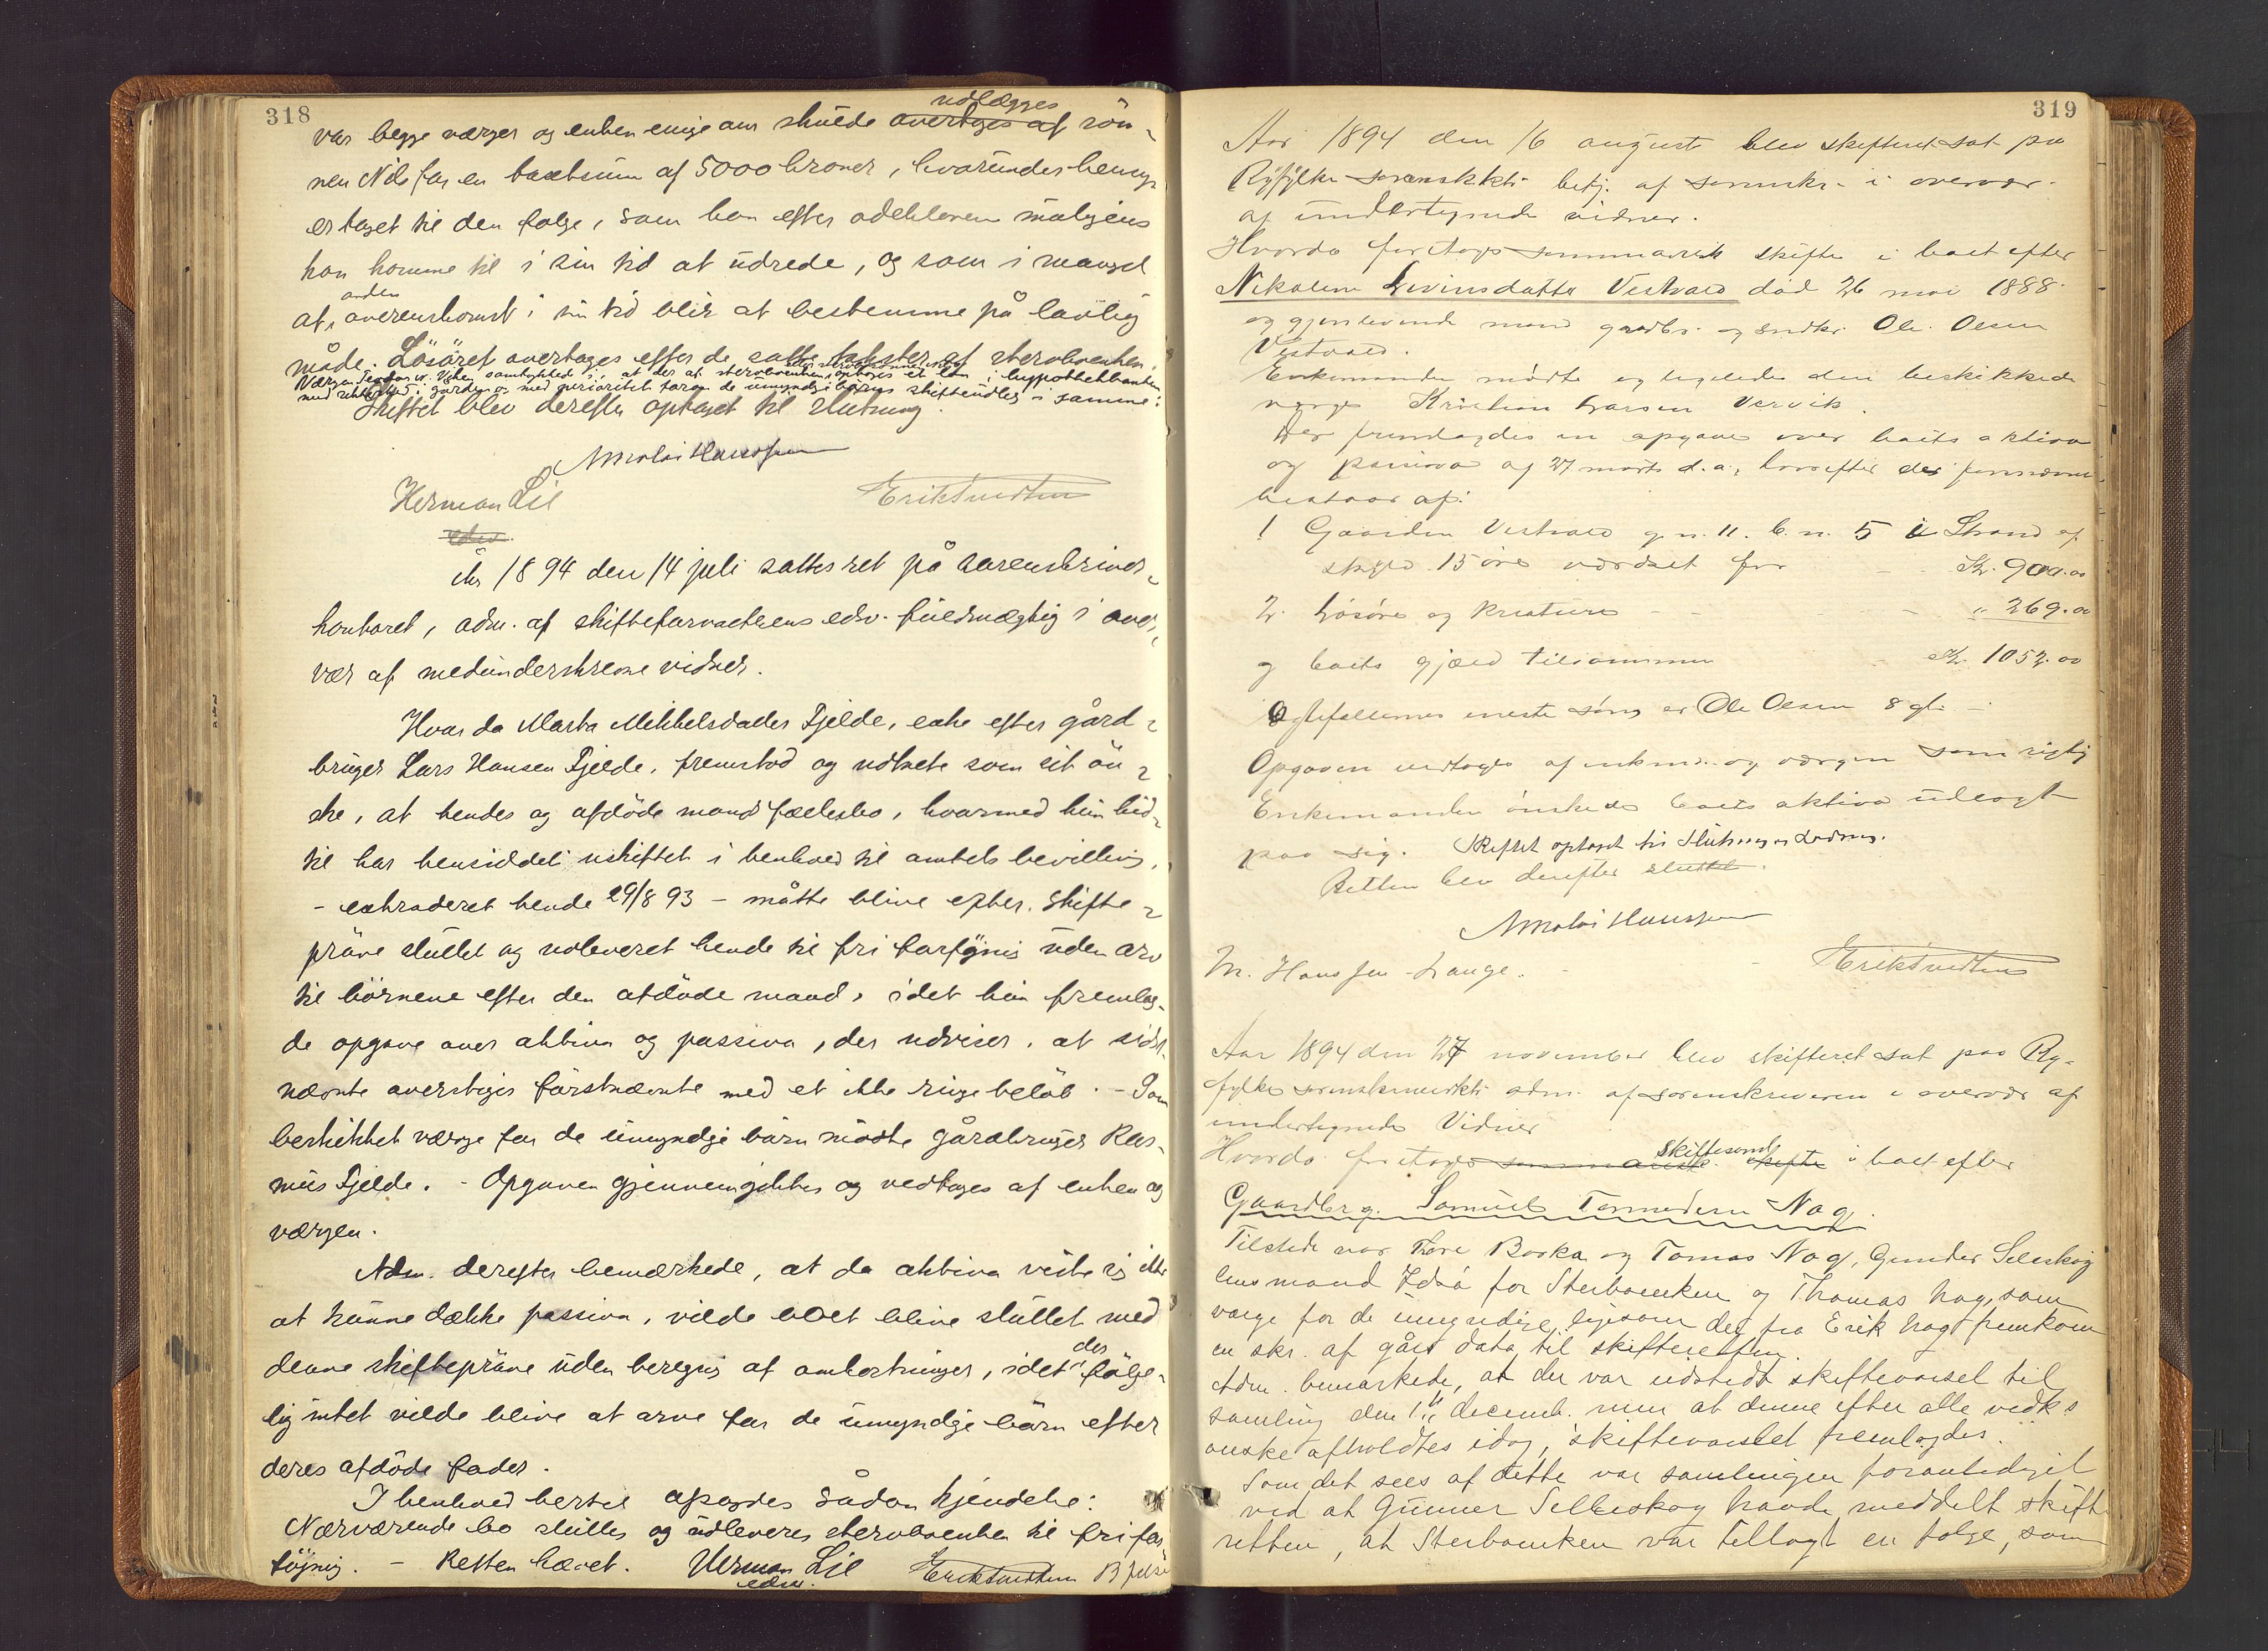 318
udlægges
var begge værger og enken enige om skulde overtages af søn-
nen Nils for en taxtsum af 5000 kroner, hvorunder hensyn
er taget til den folge, som han efter odelsloven muligens
kan komme til i sin tid at udrede, og som i mangel
anden
af overenskomst i sin tid blir at bestemme på lovlig
måde. Løsøret overtages efter de satte takster af sterboenken.
samtykkede i, at der af sterboenken optoges et lån i hypothekbanken
med prioritet foran de umyndige børns skifteudlæg i samme.
Skiftet blev derefter optaget til slutning.
Nikolai Hanssen
Herman Lil
Erik Tvedten
edsv.
År 1894 den 14 juli sattes ret på sorenskriver-
kontoret, adm. af skifteforvalterens edsv. fuldmægtig i over-
vær af medunderskrevne vidner.
Hvor da Marta Mikkelsdatter Fjelde, enke efter gård-
bruger Lars Hansen Fjelde, fremstod og udtalte som sit øn-
ske, at hendes og afdøde mands fællesbo, hvormed hun hid-
til har hensiddet uskiftet i henhold til amtets bevilling,
- extraderet hende 29/8 93 - måtte blive efter skifte-
prøve sluttet og udleveret hende til fri forføjning uden arv
til børnene efter den afdøde mand, idet hun fremlag-
de opgave over aktiva og passiva, der udviser, at sidst-
nævnte overstiger førstnævnte med et ikke ringe beløb. - Som
beskikket værge for de umyndige børn mødte gårdbruger Ras-
mus Fjelde. - Opgaven gjennemgikkes og vedtoges af enken og
værgen.
Adm. derefter bemærkede, at da aktiva viste sig ikke
at kunne dække passiva, vilde boet blive sluttet med
der
denne skifteprøve uden beregning af omkostninger, idet følge-
lig intet vilde blive at arve for de umyndige børn efter
deres afdøde fader.
I henhold hertil afsagdes sådan kjendelse:
Nærværende bo sluttes og udleveres sterboenken til fri for-
føjning. - Retten hævet. Herman Lil Erik Tvedten
edsv.
319
Aar 1894 den 16 august blev skifteret sat paa
Ryfylke sorenskkt. betj. af sorenskr. i overvær
af undertegnede vidner.
Hvorda foretoges summarisk skifte i boet efter
Nikoline Livinsdatter Vestvaad død 26 mai 1888
og gjenlevende mand gaardbr. og snedker Ole Olsen
Vestvaad.
Enkemanden mødte og ligeledes den beskikkede
værge Kristian Larsen Vervik.
Der fremlagdes en opgave over boets aktiva
og passiva af 27 marts d.a., hvorefter de førnævnte
bestaar af:
1 Gaarden Vestvaad g.n. 11. b.n. 5 i Strand af
skyld 15 øre værdsat for - - Kr. 900.00
2. Løsøre og kreature - - - " 269.00
og boets gjæld tilsammen - Kr. 1052.00
Ægtefællernes eneste søn er Ole Olsen 8 gl. -
Opgaven vedtoges af enkem. og værgen som rigtig
Enkemanden ønskede boets aktiva udlagt
paa sig. Skiftet optaget til slutning og lodning.
Retten blev derefter sluttet.
Nikolai Hanssen
M. Hanssen Lange.
Erik Tvedten
Aar 1894 den 27 november blev skifteret sat paa Ry-
fylke sorenskriverkt. adm. af sorenskriveren i overvær af
undertegnede Vidner
skiftesaml
Hvorda foretoges summarisk skifte i boet efter
Gaardbrg. Samuel Tormodsen Nag.
Tilstede var Tore Barka og Tomas Nag, Gunder Selleskog
lensmand Idsö for Sterboenken og Thomas Nag, som
værge for de umyndige, ligesom der fra Erik Nag fremkom
en skr. af gårs dato til skifteretten.
Adm. bemærkede, at der var udstedt skiftevarsel til
samling den 1ste decemb. men at denne efter alle vedk's
ønske afholdtes idag, skiftevarslet fremlagdes.
Som det sees af dette var samlingen foranlediget
ved at Gunner Selleskog havde meddelt skift-
retten, at Sterboenken var tillagt en folge, som